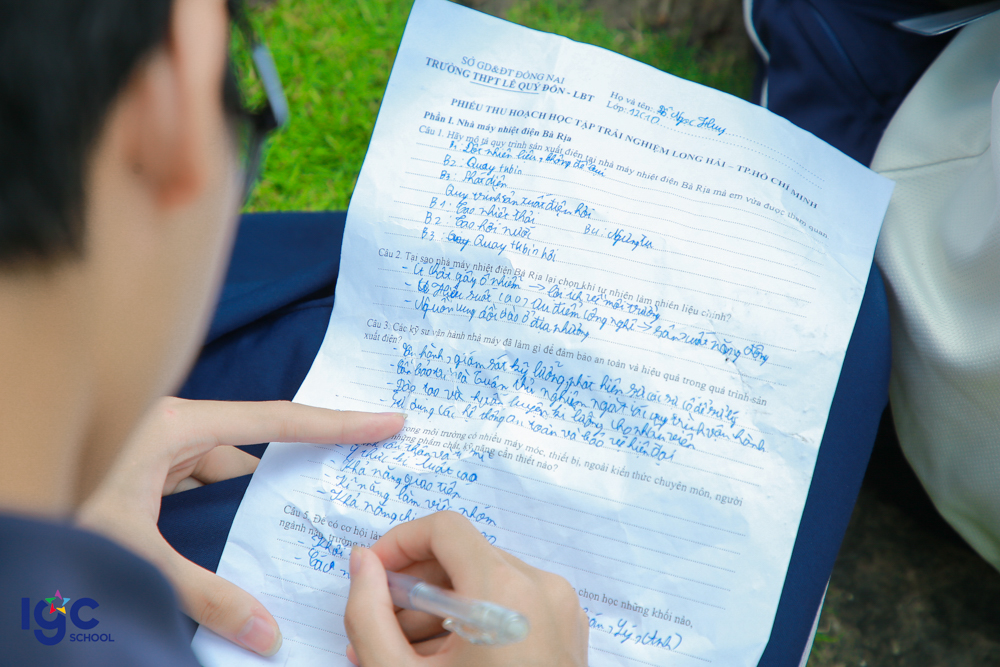 SỞ GD&ĐT ĐỒNG NAI
TRƯỜNG THPT LÊ QUÝ ĐÔN - LBT
Họ và tên: Ngọc Huy
Lớp: 12C10
PHIẾU THU HOẠCH HỌC TẬP TRẢI NGHIỆM LONG HẢI – TP.HỒ CHÍ MINH
Phần I. Nhà máy nhiệt điện Bà Rịa
Câu 1. Hãy mô tả quy trình sản xuất điện tại nhà máy nhiệt điện Bà Rịa mà em vừa được tham quan
Đốt nhiên liệu
B2: Quay tubin
B3: Phát điện
Quy trình sản xuất điện hơi
B1: Tao nhiệt thải
B4: Ngưng tụ
B2: Tao hơi nước
B3: Quay tubin hơi
Câu 2. Tại sao nhà máy nhiệt điện Bà Rịa lại chọn khí tự nhiên làm nhiên liệu chính?
- Ít chất gây ô nhiễm → lợi ích về môi trường
- Hiệu suất cao, ưu điểm công nghệ → sản xuất năng động
- Nguồn cung dồi dào ở địa phương
Câu 3. Các kỹ sư vận hành nhà máy đã làm gì để đảm bảo an toàn và hiệu quả trong quá trình sản
xuất điện?
hành, giám sát kỹ lưỡng, phát hiện ra các sự cố để xử lý
bảo trì và tuân thủ nghiêm ngặt các quy trình vận hành
- Đào tạo và huấn luyện kĩ lưỡng cho nhân viên
- Sử dụng các hệ thống an toàn và bảo vệ hiện đại
trong môi trường có nhiều máy móc, thiết bị, ngoài kiến thức chuyên môn, người
những phẩm chất, kỹ năng cần thiết nào?
cẩn thận và tỉ mỉ
ý thức kỉ luật cao
- Khả năng giao tiếp
- Kĩ năng làm việc nhóm
- Khả năng
Câu 5. Để có cơ hội làm
chọn học những khối nào,
ngành này, trường
- Khối
Lý, Anh)
- Các
IGC
SCHOOL